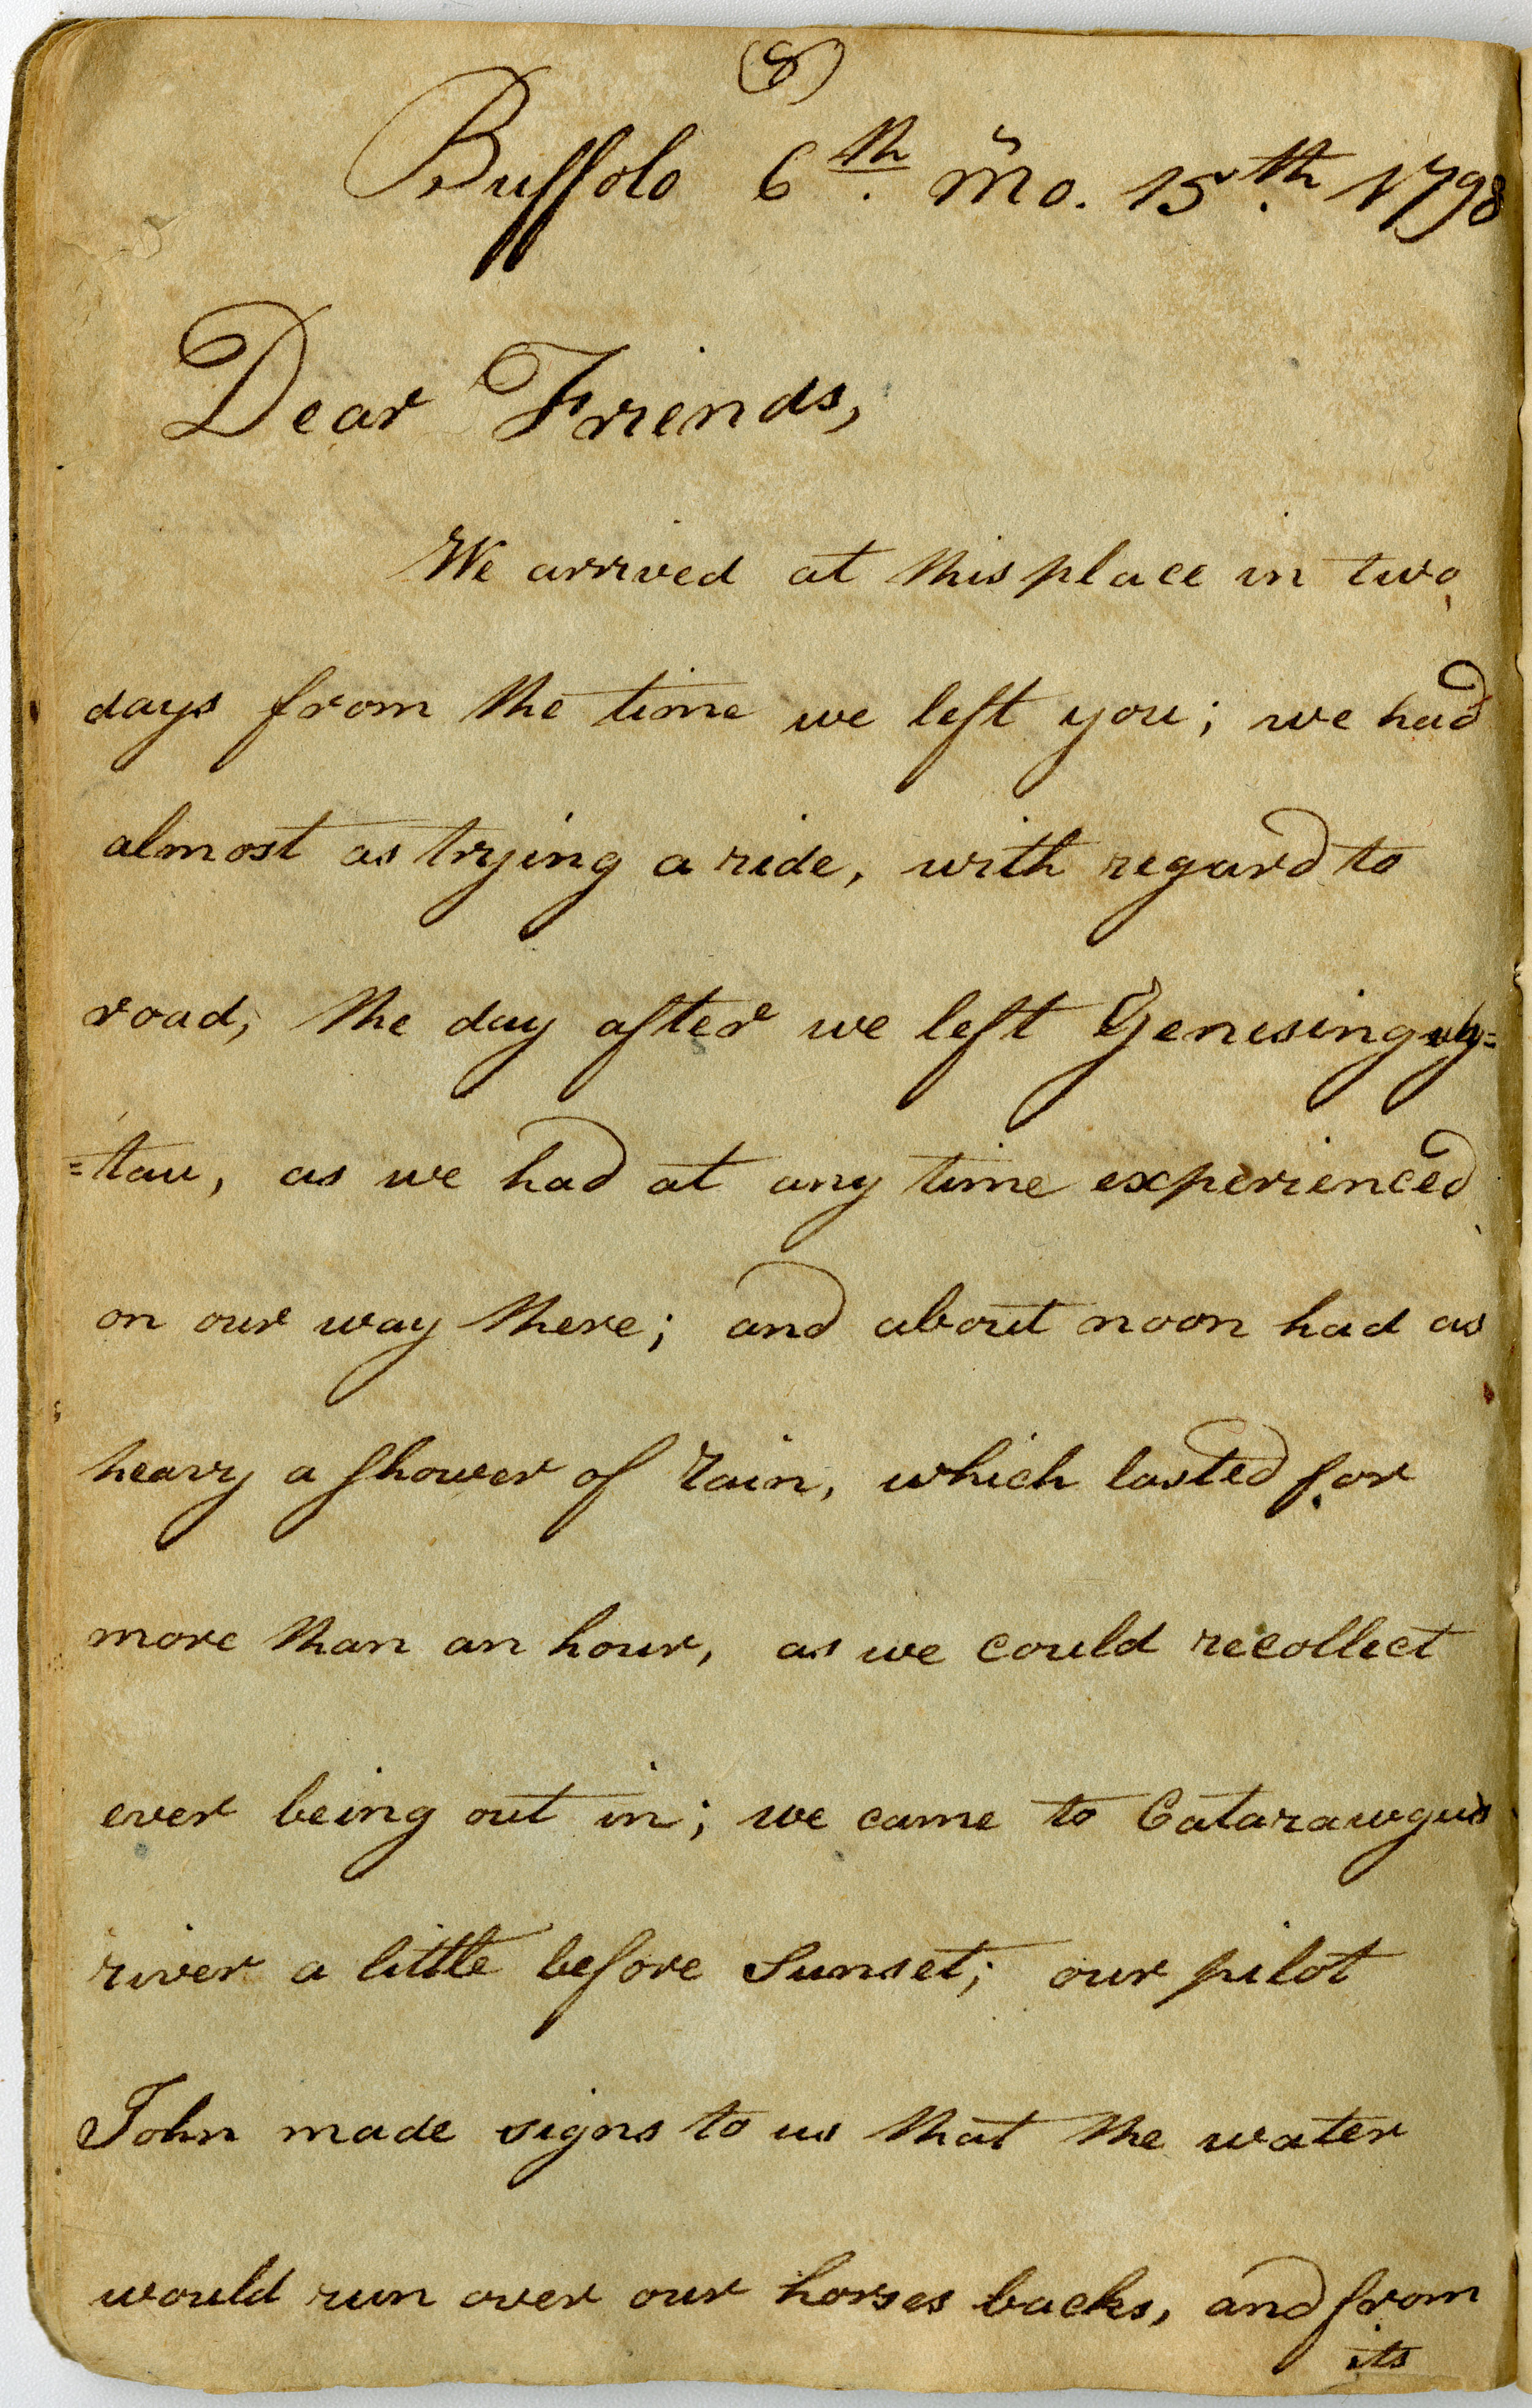 (8)
Buffolo 6th. mo. 15th. 1798
Dear Friends,
We arrived at this place in two
days from the time we left you; we had
almost as trying a ride, with regard to
road, the day after we left Genesinguh=
=tau, as we had at any time experienced
on our way there; and about noon had as
heavy a shower of rain, which lasted for
more than an hour, as we could recollect
ever being out in; we came to Catarawgus
river a little before Sunset; our pilot
John made signs to us that the water
would run over our horses backs, and from
its